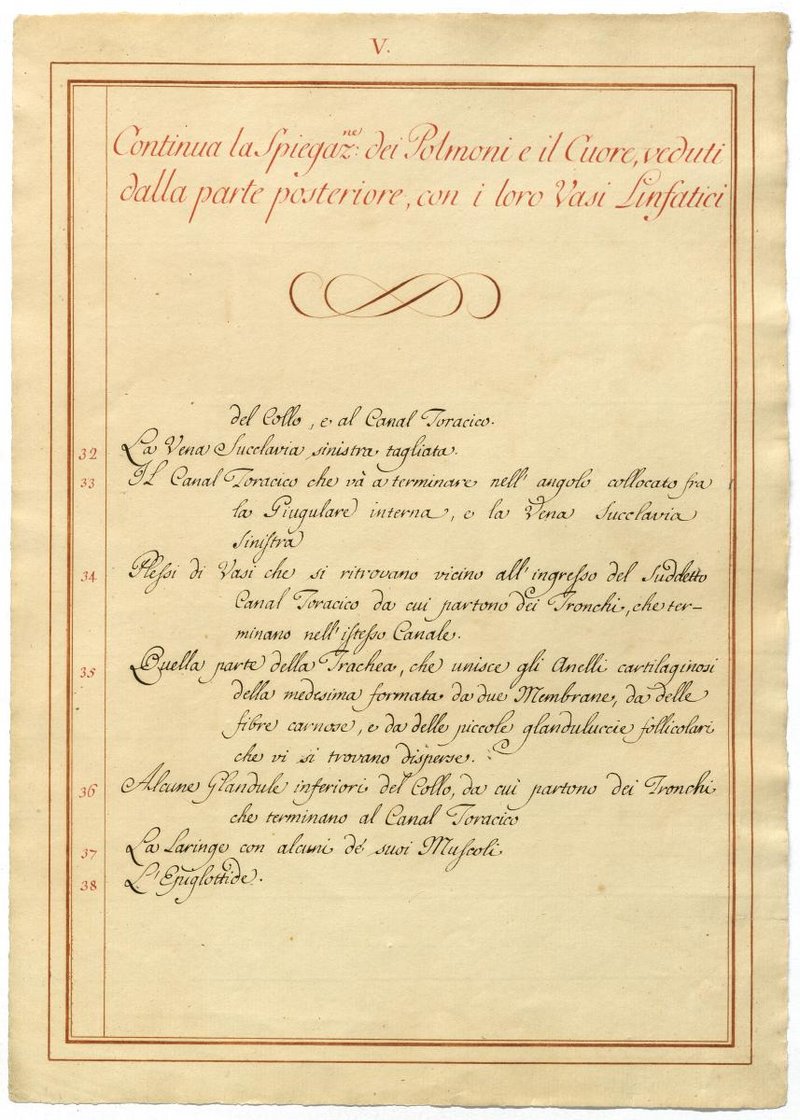 V.
Continua la Spiegaz:ne dei Polmoni e il Cuore, veduti
dalla parte posteriore, con i loro Vasi Linfatici
del Collo, e al Canal Toracico.
32 La Vena Succlavia sinistra tagliata.
33 Il Canal Toracico che và a terminare nell' angolo collocato fra
la Giugulare interna, e la Vena Succlavia
sinistra
34 Plessi di Vasi che si ritrovano vicino all' ingresso del Suddetto
Canal Toracico da cui partono dei Tronchi, che ter-
minano nell' istesso Canale.
35 Quella parte della Trachea, che unisce gli Anelli cartilaginosi
della medesima formata da due Membrane, da delle
fibre carnose, e da delle piccole glanduluccie follicolari
che vi si trovano disperse.
36 Alcune Glandule inferiori del Collo, da cui partono dei Tronchi
che terminano al Canal Toracico
37 La Laringe con alcuni de' suoi Muscoli
38 L' Epiglottide.